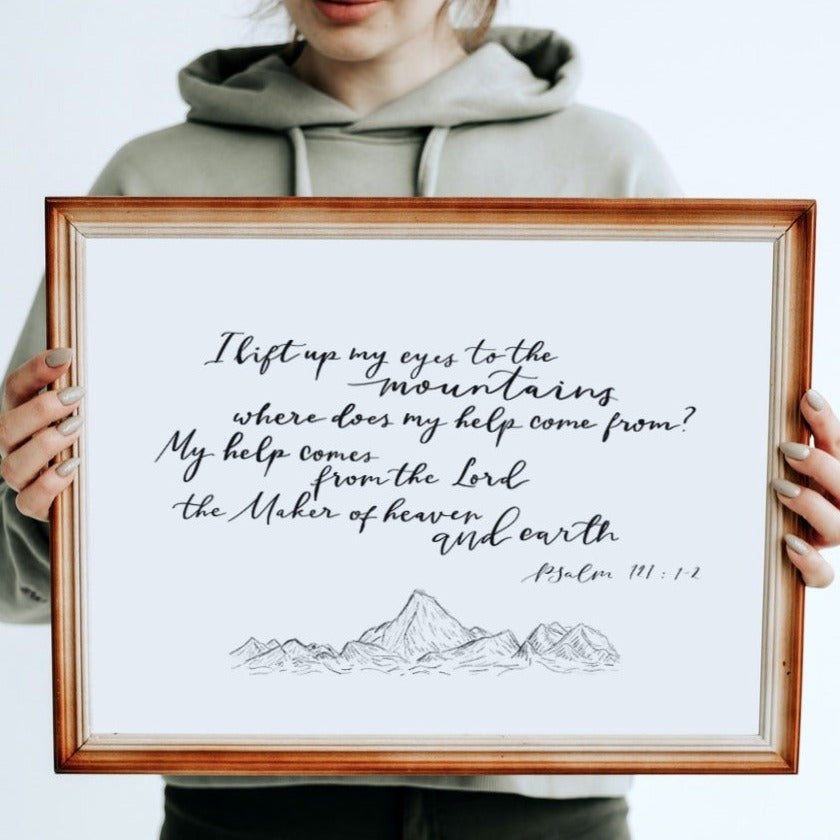 I lift up my eyes to the
mountains
where does my help come from?
My help comes
from the Lord
the Maker of heaven
and earth
Psalm 121 : 1-2